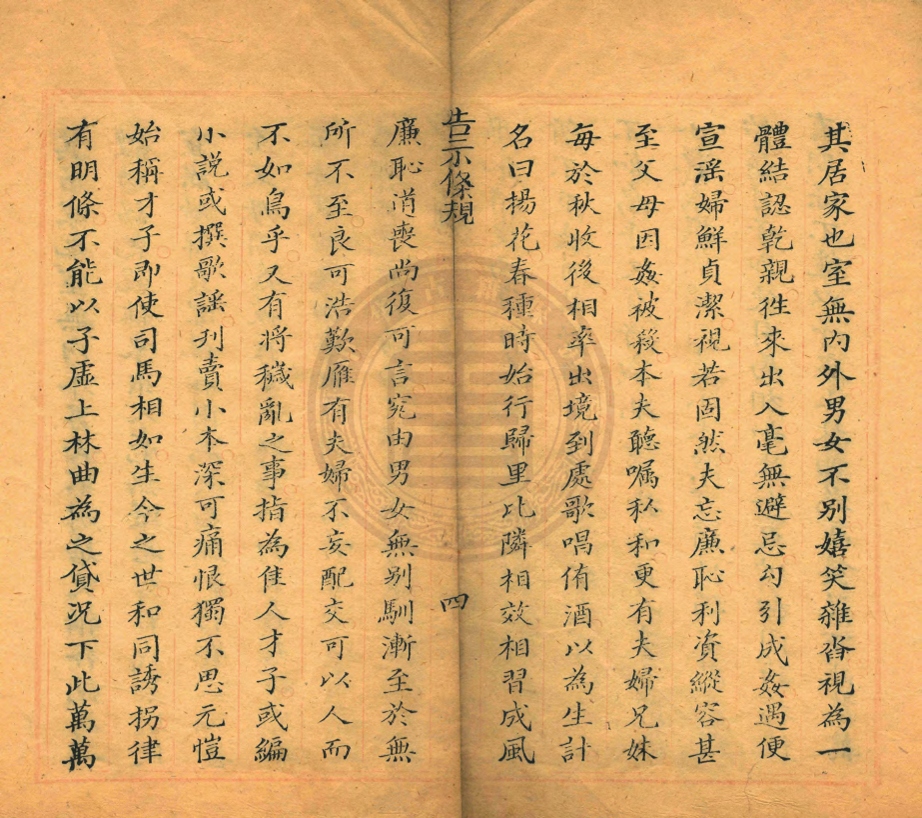 其居家也室無內外男女不別嬉笑雜沓視為一
體結認乾親徃來出入毫無避忌勾引成姦遇便
宣滛婦鮮貞潔視若固然夫忘廉恥利資縱容甚
至父母因姦被殺本夫聽嘱私和更有夫婦兄妹
每於秋收後相率出境到處歌唱侑酒以為生計
名曰揚花春種時始行歸里比隣相效相習成風
告示條規
四
廉恥消喪尚復可言究由男女無别馴漸至於無
所不至良可浩歎雁有夫婦不妄配交可以人而
不如鳥乎又有將穢亂之事指為佳人才子或編
小說或撰歌謡刋賣小本深可痛恨獨不思元愷
始稱才子即使司馬相如生今之世和同誘拐律
有明條不能以子虛上林曲為之貸況下此萬萬